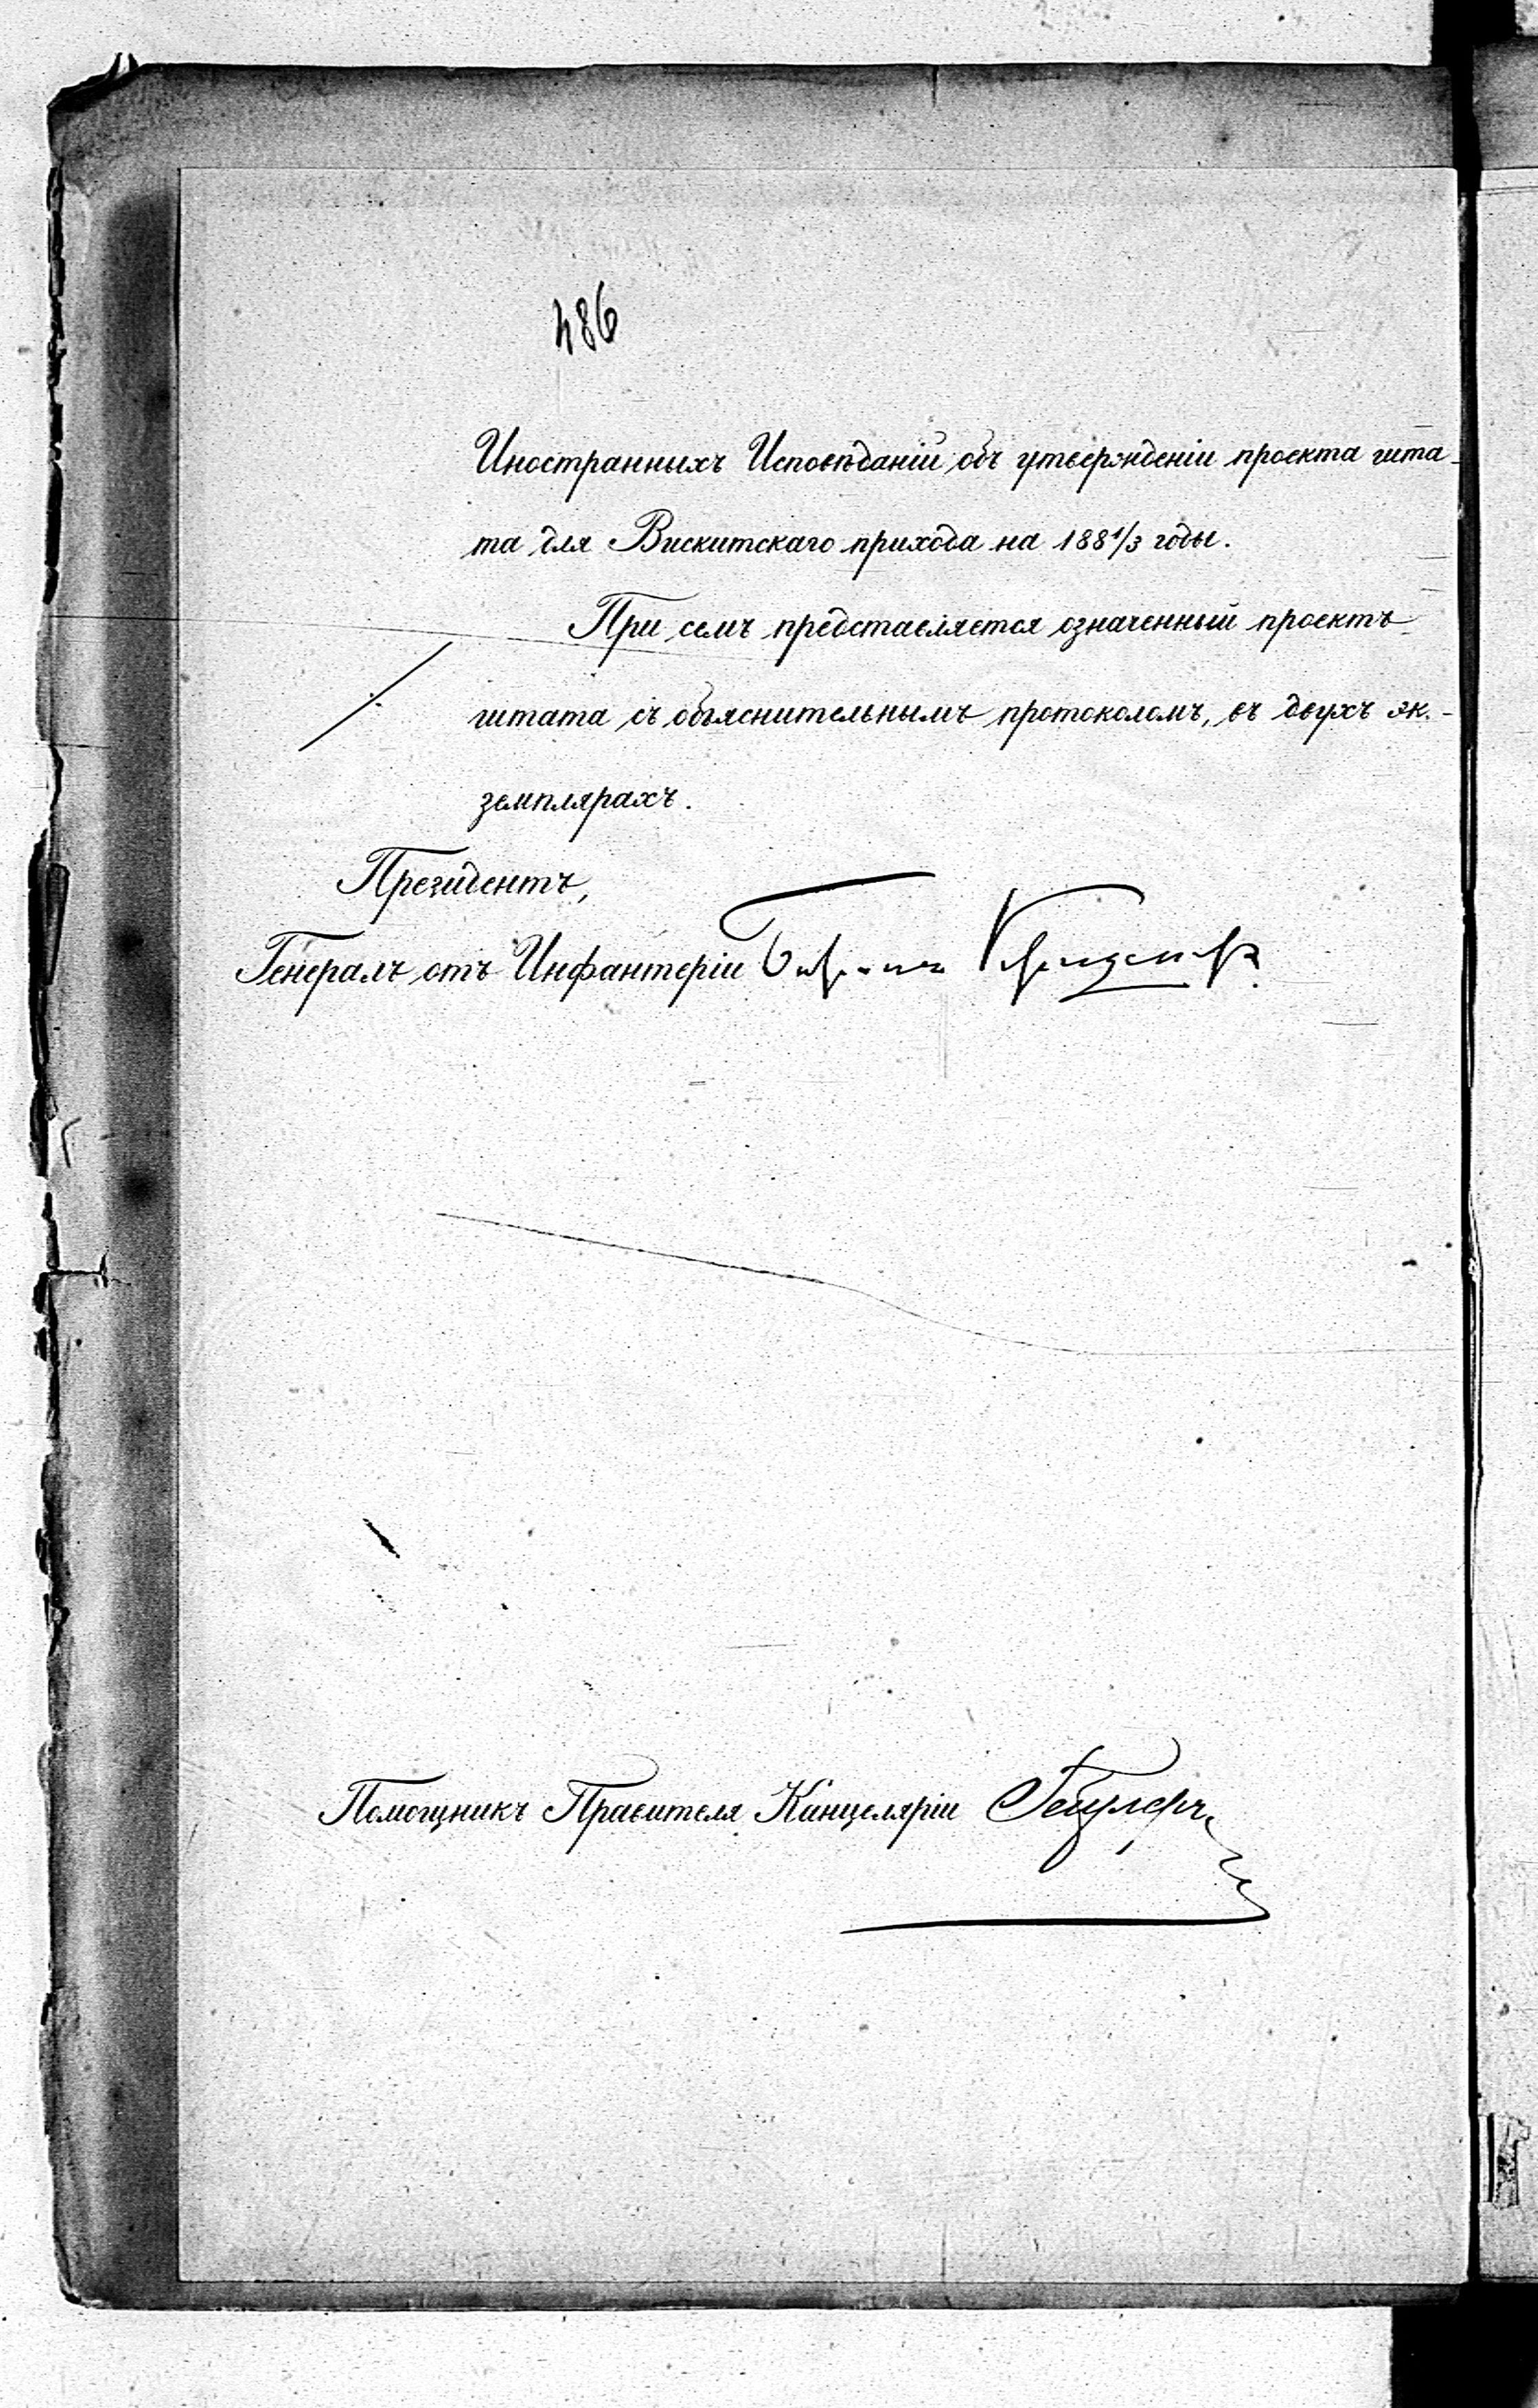 486
Иностранныхъ Исповѣданій объ утвержденіи проекта шта-
та для Вискитскаго прихода на 188 1/3 годы.
При семъ представляется означенный проектъ
штата съ объяснительнымъ протоколомъ, въ двухъ эк-
земплярахъ.
Президентъ,
Генералъ отъ Инфантеріи Баронъ
Помощникъ Правителя Канцеляріи